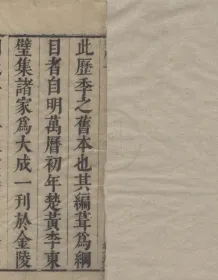 此歷季之舊本也其編葺爲綱
目者自明萬曆初年楚黃李東
璧集諸家爲大成一刊於金陵